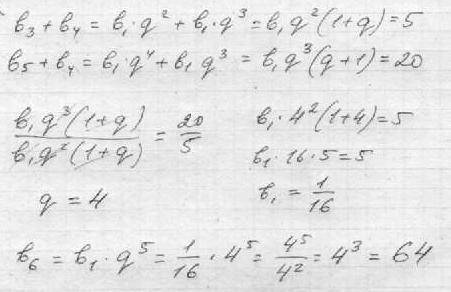 b₃ + b₄ = b₁·q² + b₁·q³ = b₁q²(1+q) = 5
b₅ + b₄ = b₁·q⁴ + b₁q³ = b₁q³(q+1) = 20
b₁q³(1+q) / b₁q²(1+q) = 20/5
q = 4
b₁·4²(1+4) = 5
b₁·16·5 = 5
b₁ = 1/16
b₆ = b₁·q⁵ = 1/16·4⁵ = 4⁵/4² = 4³ = 64